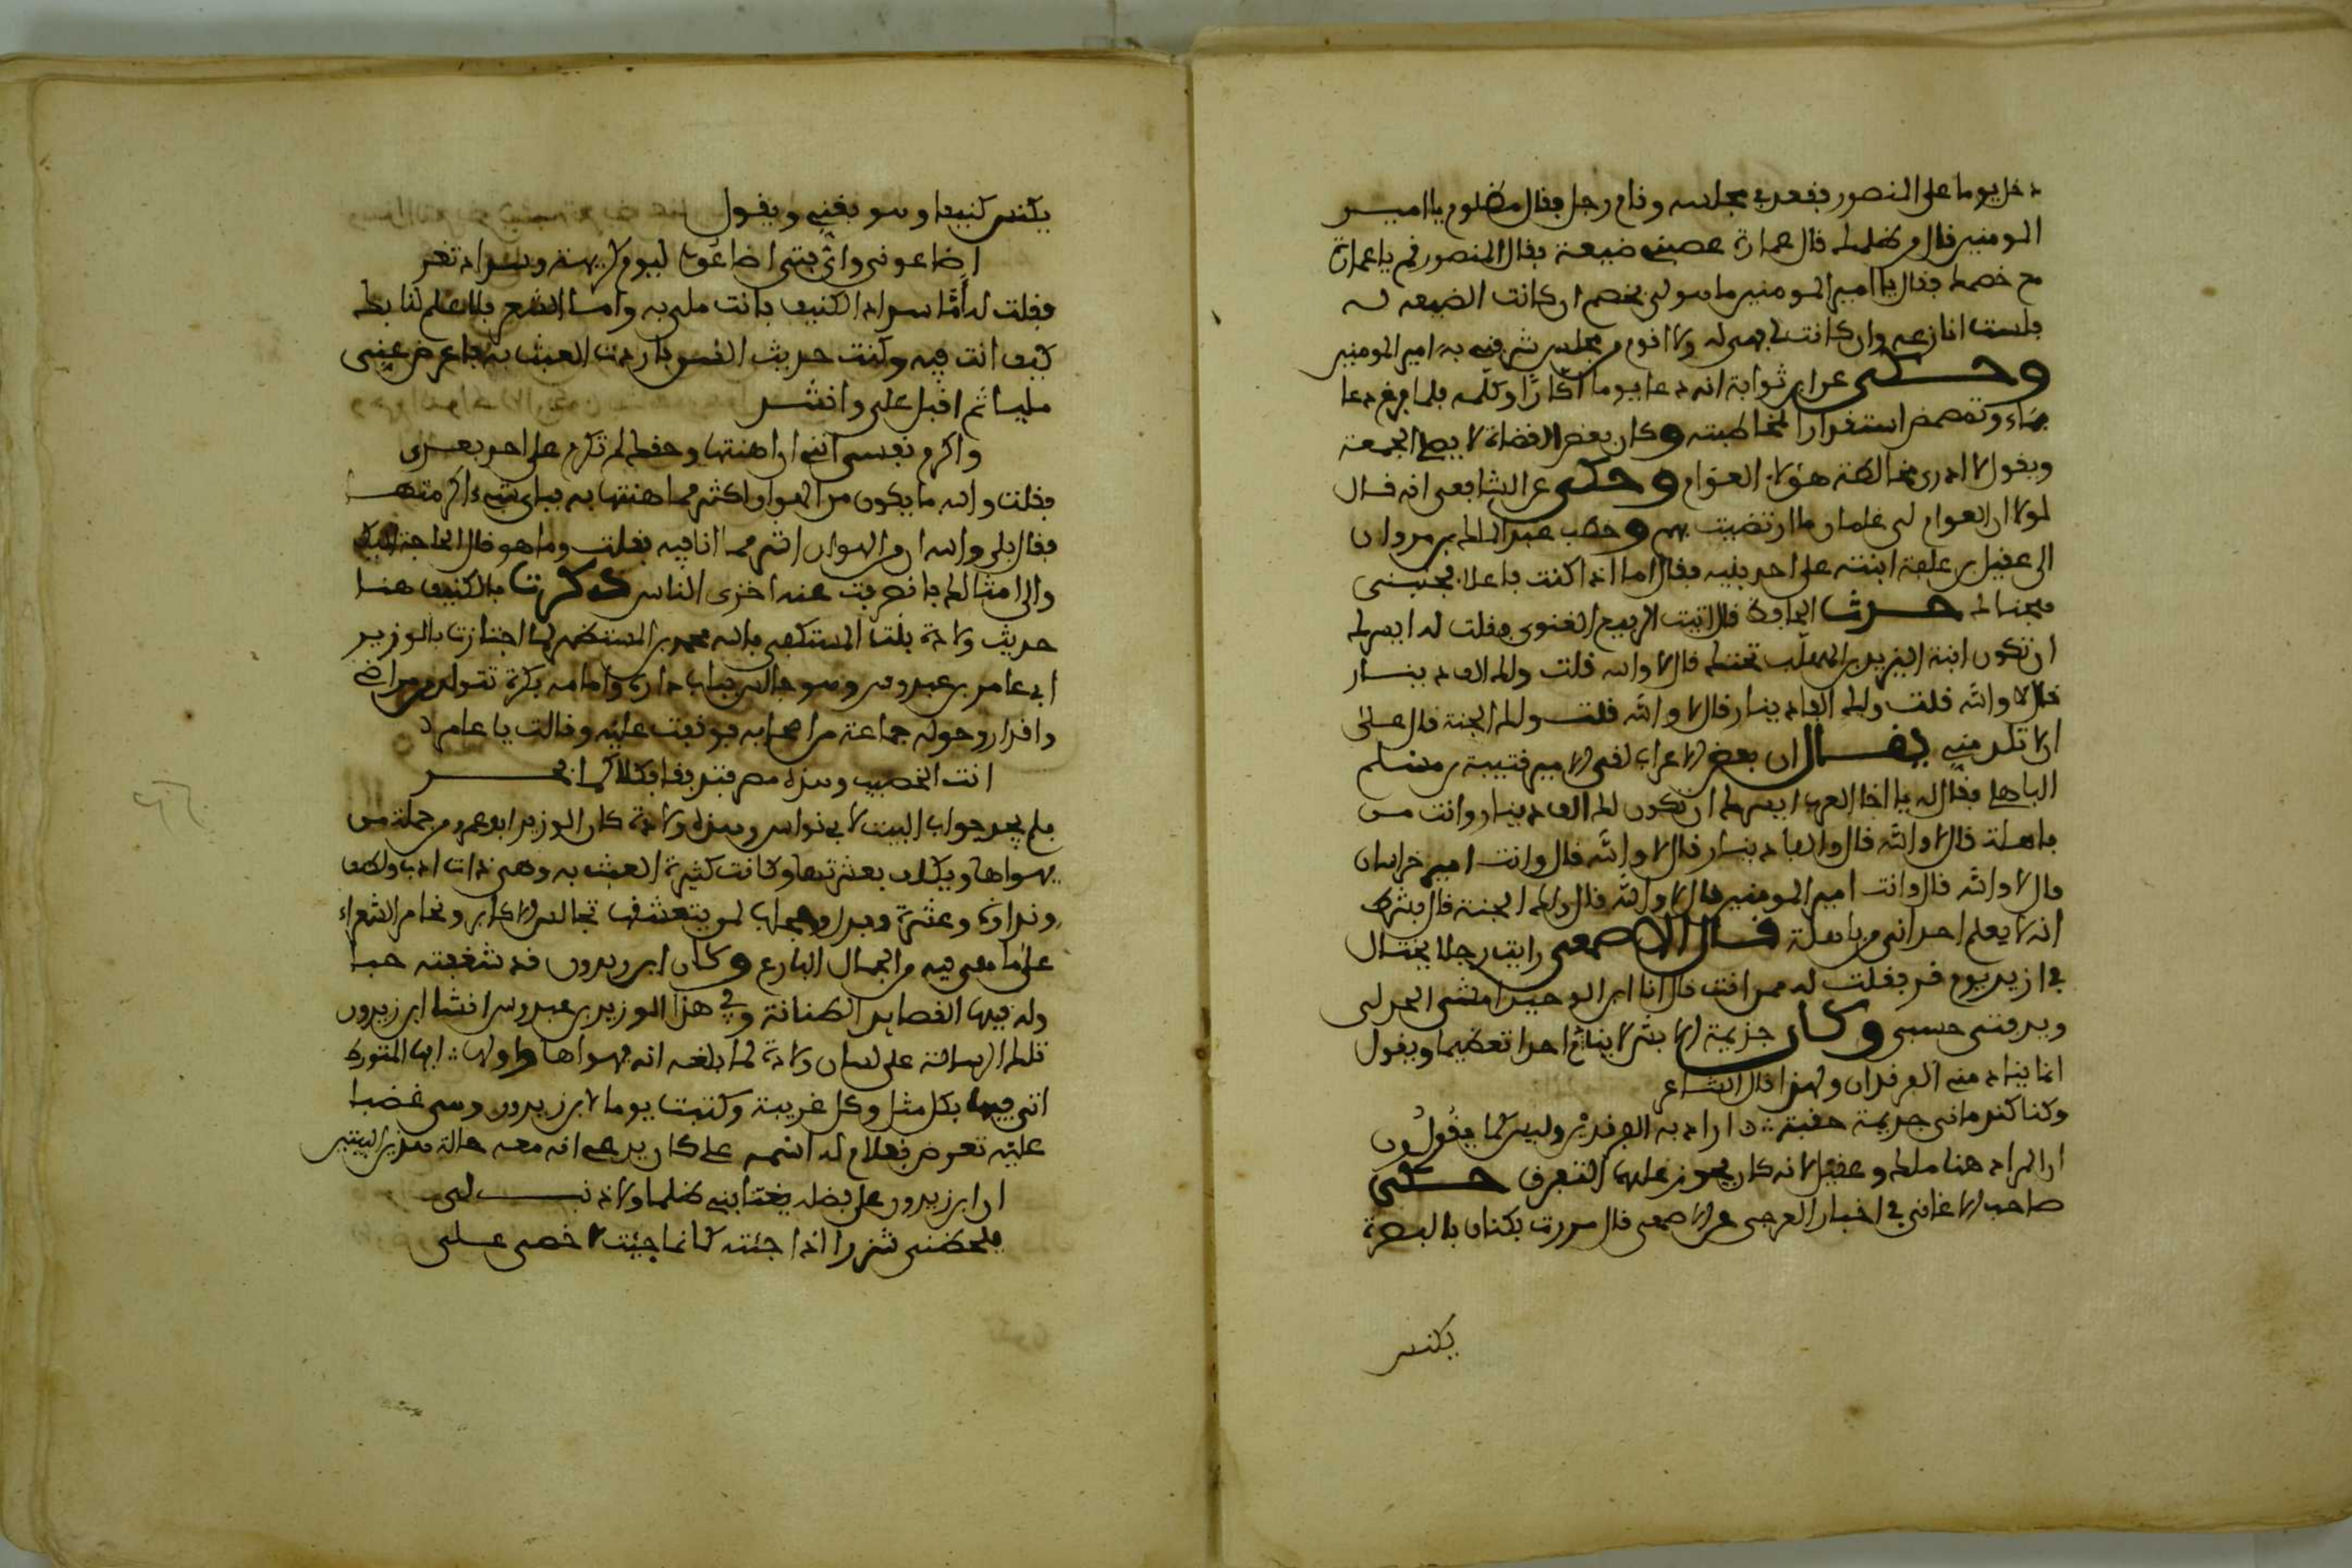 دخل يوما على المنصور فقعد في مجلسه وقام رجل فقال مظلوم يا امير
المومنين قال من ظلمك قال عمارة غصبني ضيعة فقال المنصور قم يا عمارة
مع خصمك فقال يا امير المومنين ما هو لي بخصم ان كانت الضيعه له
فلست انازعه وان كانت لي فهي له ولا اقوم من مجلس شرفني به امير المومنين
وحكى عن ابن ثوابة انه دعا يوما اكارا وكلمه فلما فرغ دعا
بماء وتمضمض استقذارا لمخاطبته وكان بعض القضاة لا يصلي الجمعة
ويقول لا ادري مخالطة هؤلاء العوام وحكى عن الشافعي انه قال
لولا ان العوام لي غلمان ما ارتضيت بهم وخطب عبد الملك بن مروان
الى عقيل بن علفة ابنته على احد بنيه فقال اما اذا كنت فاعلا فجنبني
هجناك حدث الجاحظ قال اتيت الربيع الغنوي فقلت له ايسرك
ان تكون ابنة اليزيد بن المهلب تحتك قال لا والله قلت ولك الف دينار
قال لا والله قلت ولك الفا دينار قال لا والله قلت ولك الجنة قال على
ان لا تلد مني يقال ان بعض الاعراب لقي الامير قتيبة بن مسلم
الباهلي فقال له يا اخا العرب ايسرك ان تكون لك الف دينار وانت من
باهلة قال لا والله قال والفا دينار قال لا والله قال وانت امير خراسان
قال لا والله قال وانت امير المومنين قال لا والله قال ولك الجنة قال بشرط
انه لا يعلم احد اني من باهلة قال الاصمعي رايت رجلا يختال
في ازير يوم قر فقلت له ممن انت قال انا ابن الوحيد امشي الخيزلى
ويدفئني حسبي وكان جذيمة الابرش لا ينادم احدا تعظيما ويقول
انما ينادمني الفرقدان ولهذا قال الشاعر
وكنا كندماني جذيمة حقبة ارادبه الفرقدين وليس كما يقولون
ان المراد هنا ملك وعقيل لانه كان يجوز عليهما التفرق حكى
صاحب الاغاني في اخبار العرجي عن الاصمعي قال مررت بكناس بالبصرة
يكنس
يكنس كنيفا وهو يغني ويقول
اضاعوني واي فتى اضاعوا ليوم كريهة وسداد ثغر
فقلت له اما سداد الكنيف فانت ملي به واما الثغر فلا علم لنا بك
كيف انت فيه وكنت حديث السن فاردت العبث به فاعرض عني
مليا ثم اقبل علي وانشد
واكرم نفسي انني ان اهنتها وحقك لم تكرم على احد بعدي
فقلت والله ما يكون من الهوان اكثر مما اهنتها به فباي شيء اكرمتها
فقال بلى والله ان من الهوان اشر مما انا فيه فقلت وما هو قال الحاجة اليك
والى امثالك فانصرفت عنه اخزى الناس ذكرت بالكنيف هنا
حديث ولادة بنت المستكفي بالله محمد بن المستظهر لما اجتازت بالوزير
ابي عامر بن عبدوس وهو جالس بباب داره وامامه بركة تتولد من مراحيض
واقذار وحوله جماعة من اصحابه فوقفت عليه وقالت يا عامر
انت الخصيب وهذه مصر فتدفقا فكلاكما بحر
فلم يحر جواب البيت لابي نواس وهذه ولادة كان الوزير ابو عمر من جملة من
يهواها ويكلف بعشرتها وكانت كثيرة العبث به وهي ذات ادب ولطف
وظرافة وعشرة وبدر وهجاء لمن يتعشقها تجالس الاكابر وتحاضر الشعراء
على ما هي فيه من الجمال البارع وكان ابن زيدون قد شغفته حبا
وله فيها القصايد الطنانة وفي هذا الوزير بن عبدوس انشا ابن زيدون
تلك الرسالة على لسان ولادة لما بلغه انه يهواها واولها ايها المتورط
اتى فيها بكل مثل وكل غريبة وكتبت يوما لابن زيدون وهي غضبا
عليه تعرض بغلام له اسمه علي كان يدعى انه معه حالة هذين البيتين
ان ابن زيدون على فضله يغتابني ظلما ولا ذنب لي
يلحظني شزرا اذا جئته كانما جئت لاخصي علي